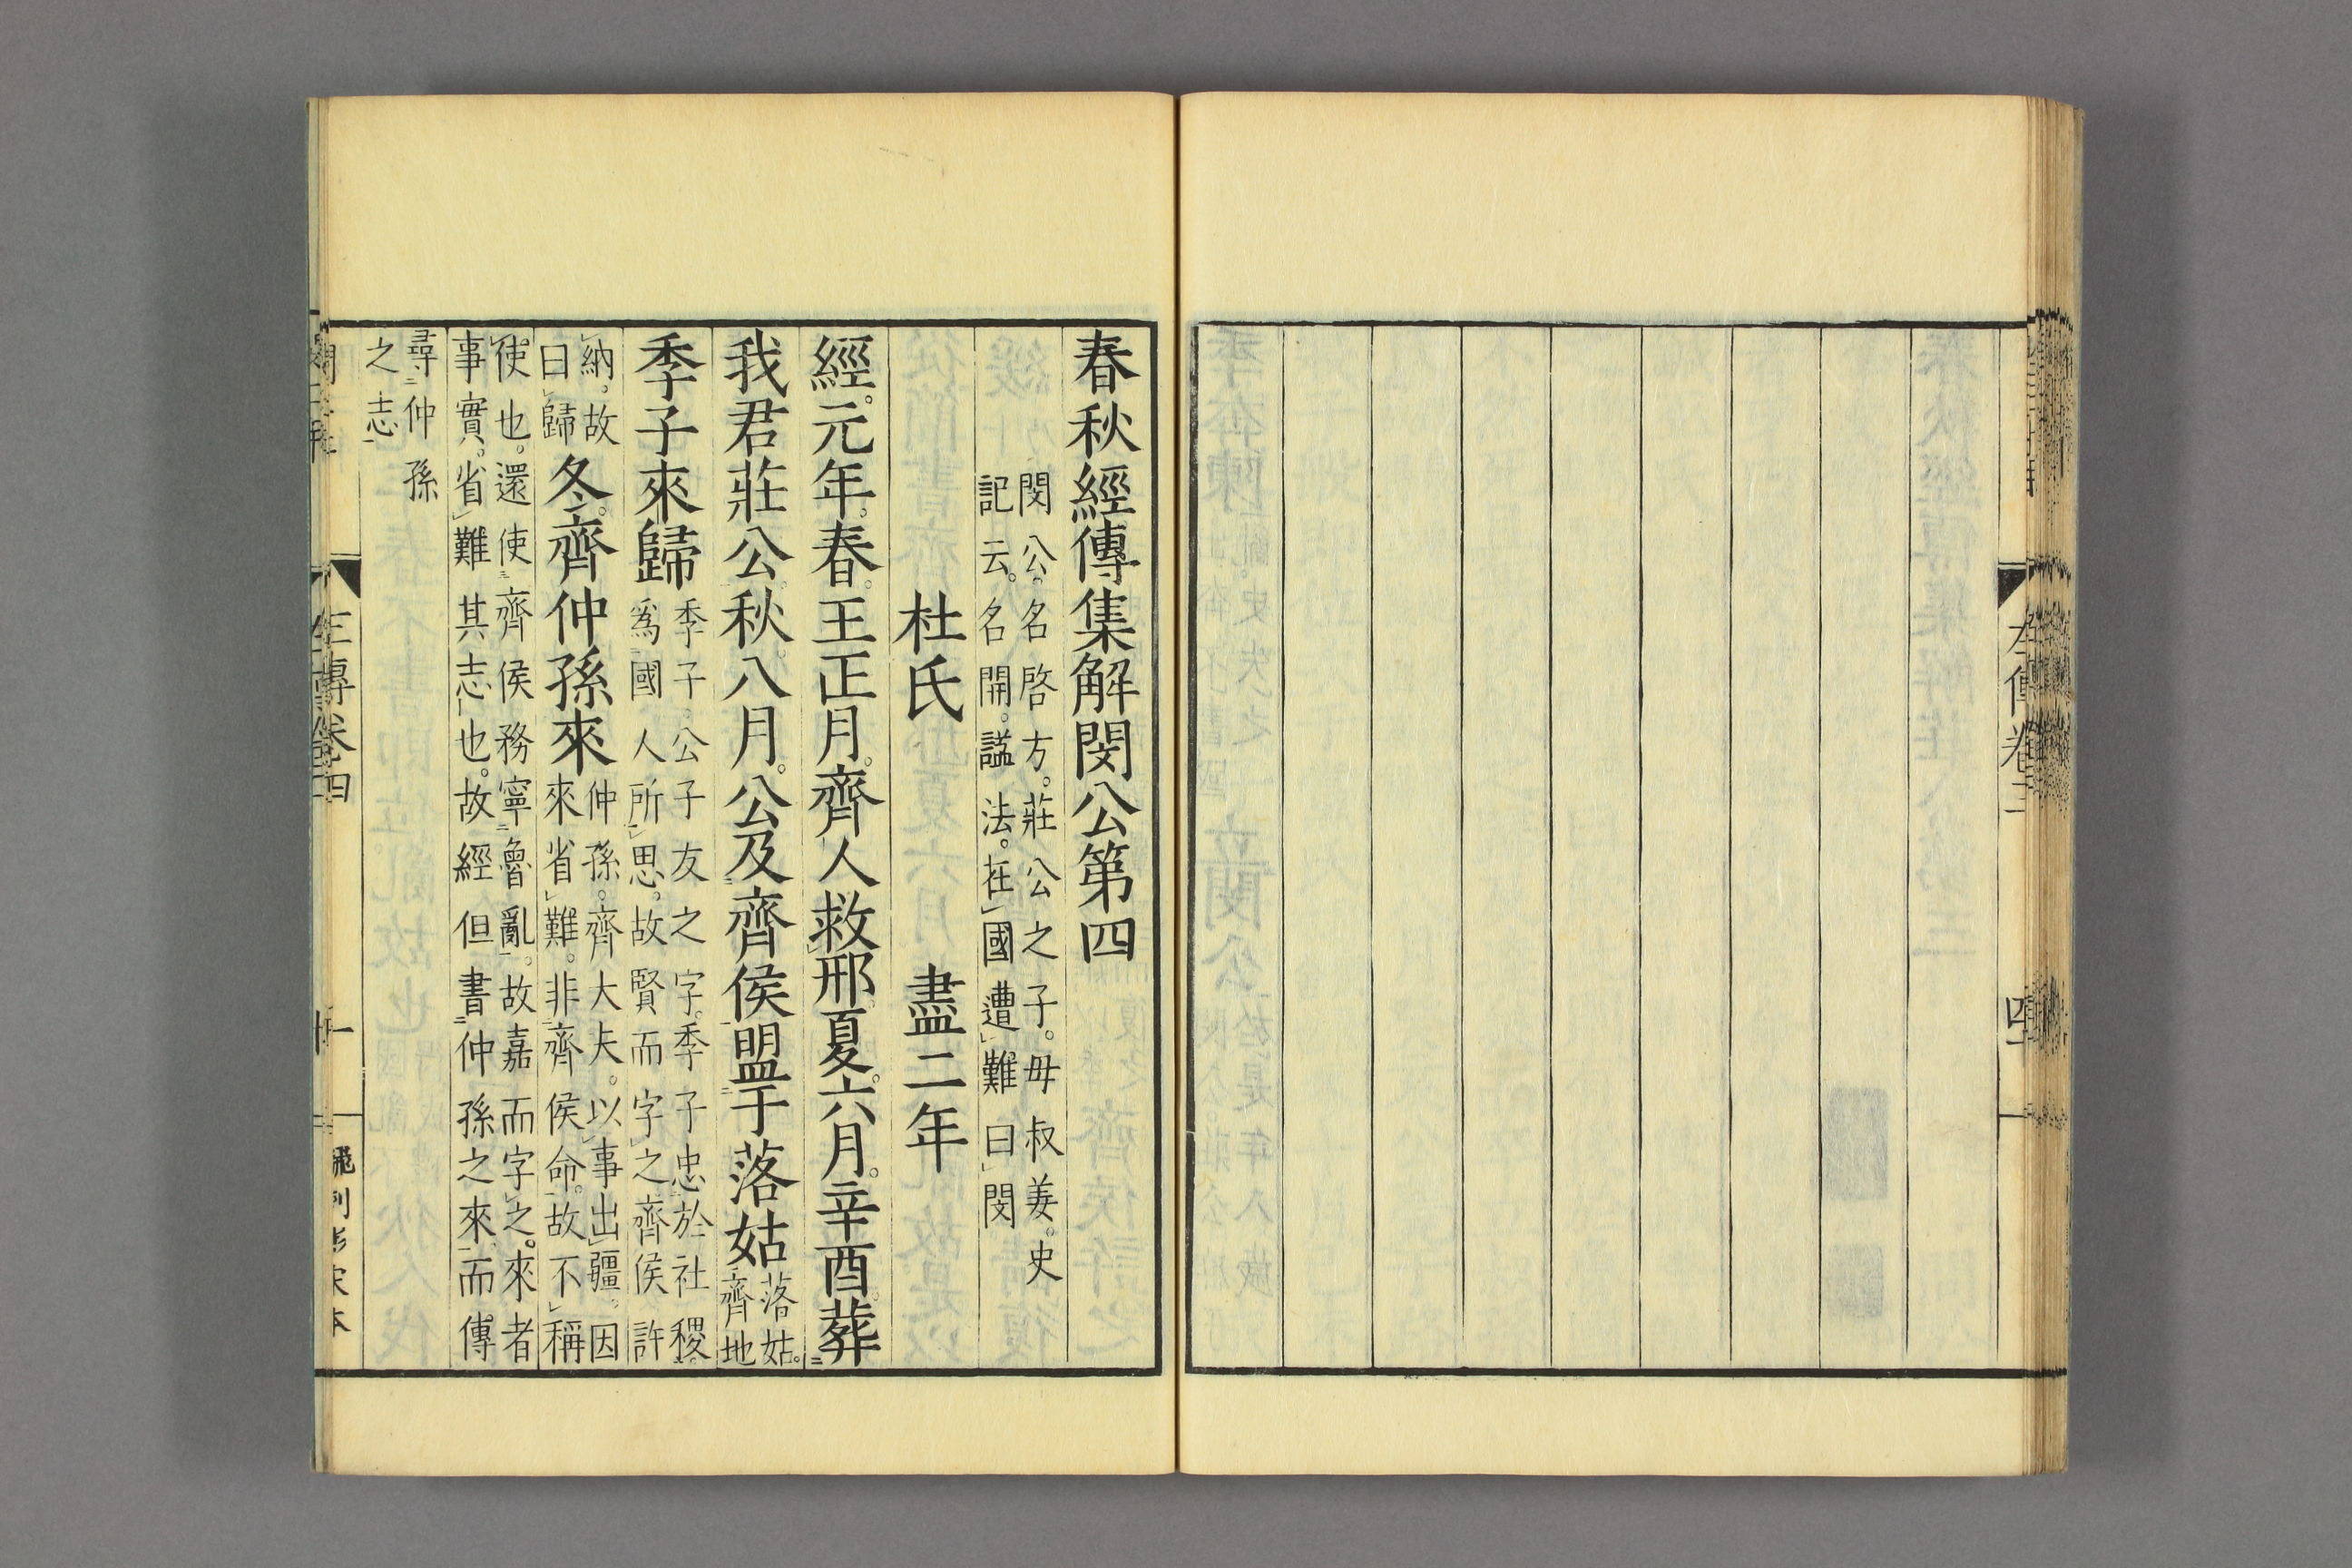 春秋經傳集解閔公第四
閔公名啓方。莊公之子。毋叔姜。史
記云。名開。諡法。在國遭難曰閔
杜氏 盡二年
經。元年。春。王正月。齊人救邢。夏。六月。辛酉。葬
我君莊公。秋。八月。公及齊侯盟于落姑落姑。
齊地
季子來歸季子。公子友之字。季子忠於社稷。
爲國人所思。故賢而字之。齊侯許
納。故
曰歸
冬。齊仲孫來仲孫。齊大夫。以事出疆。因
來省難。非齊侯命。故不稱
使也。還使齊侯務寧魯亂。故嘉而字之。來者
事實。省難其志也。故經但書仲孫之來。而傳
尋仲孫
之志
左傳卷四
一
左傳卷三
四